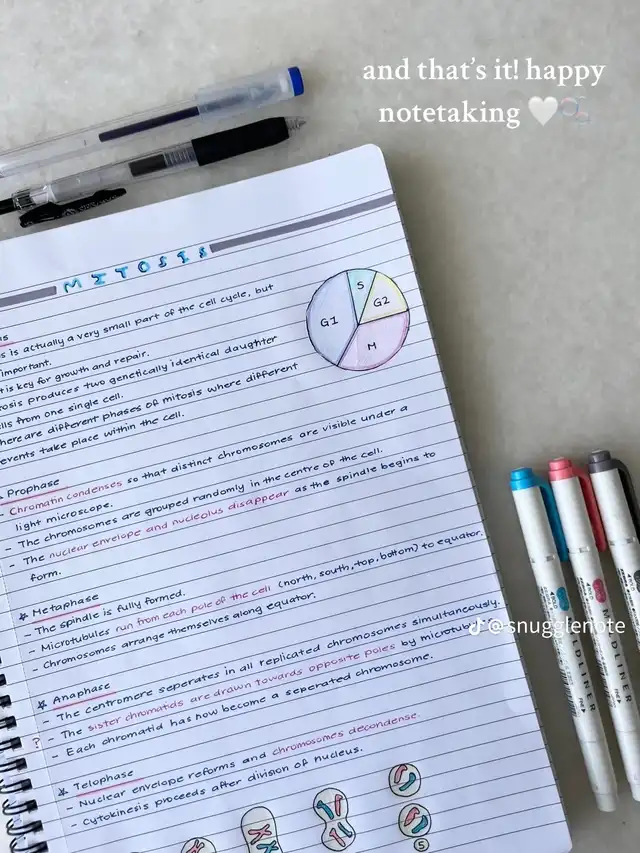 and that's it! happy
notetaking 🤍
MITOSIS
is actually a very small part of the cell cycle, but
important.
it is key for growth and repair.
produces two genetically identical daughter
from one single cell.
here are different phases of mitosis where different
events take place within the cell.
S
G1
G2
M
Prophase
- Chromatin condenses so that distinct chromosomes are visible under a
light microscope.
- The chromosomes are grouped randomly in the centre of the cell.
- The nuclear envelope and nucleolus disappear as the spindle begins to
form.
☆ Metaphase
- The spindle is fully formed.
- Microtubules run from each pole of the cell (north, south, top, bottom) to equator.
- Chromosomes arrange themselves along equator.
☆ Anaphase
- The centromere seperates in all replicated chromosomes simultaneously.
- The sister chromatids are drawn towards opposite poles by
- Each chromatid has now become a seperated chromosome.
☆ Telophase
- Nuclear envelope reforms and chromosomes decondense.
- Cytokinesis proceeds after division of nucleus.
5
@snugglenote
MILDLINER